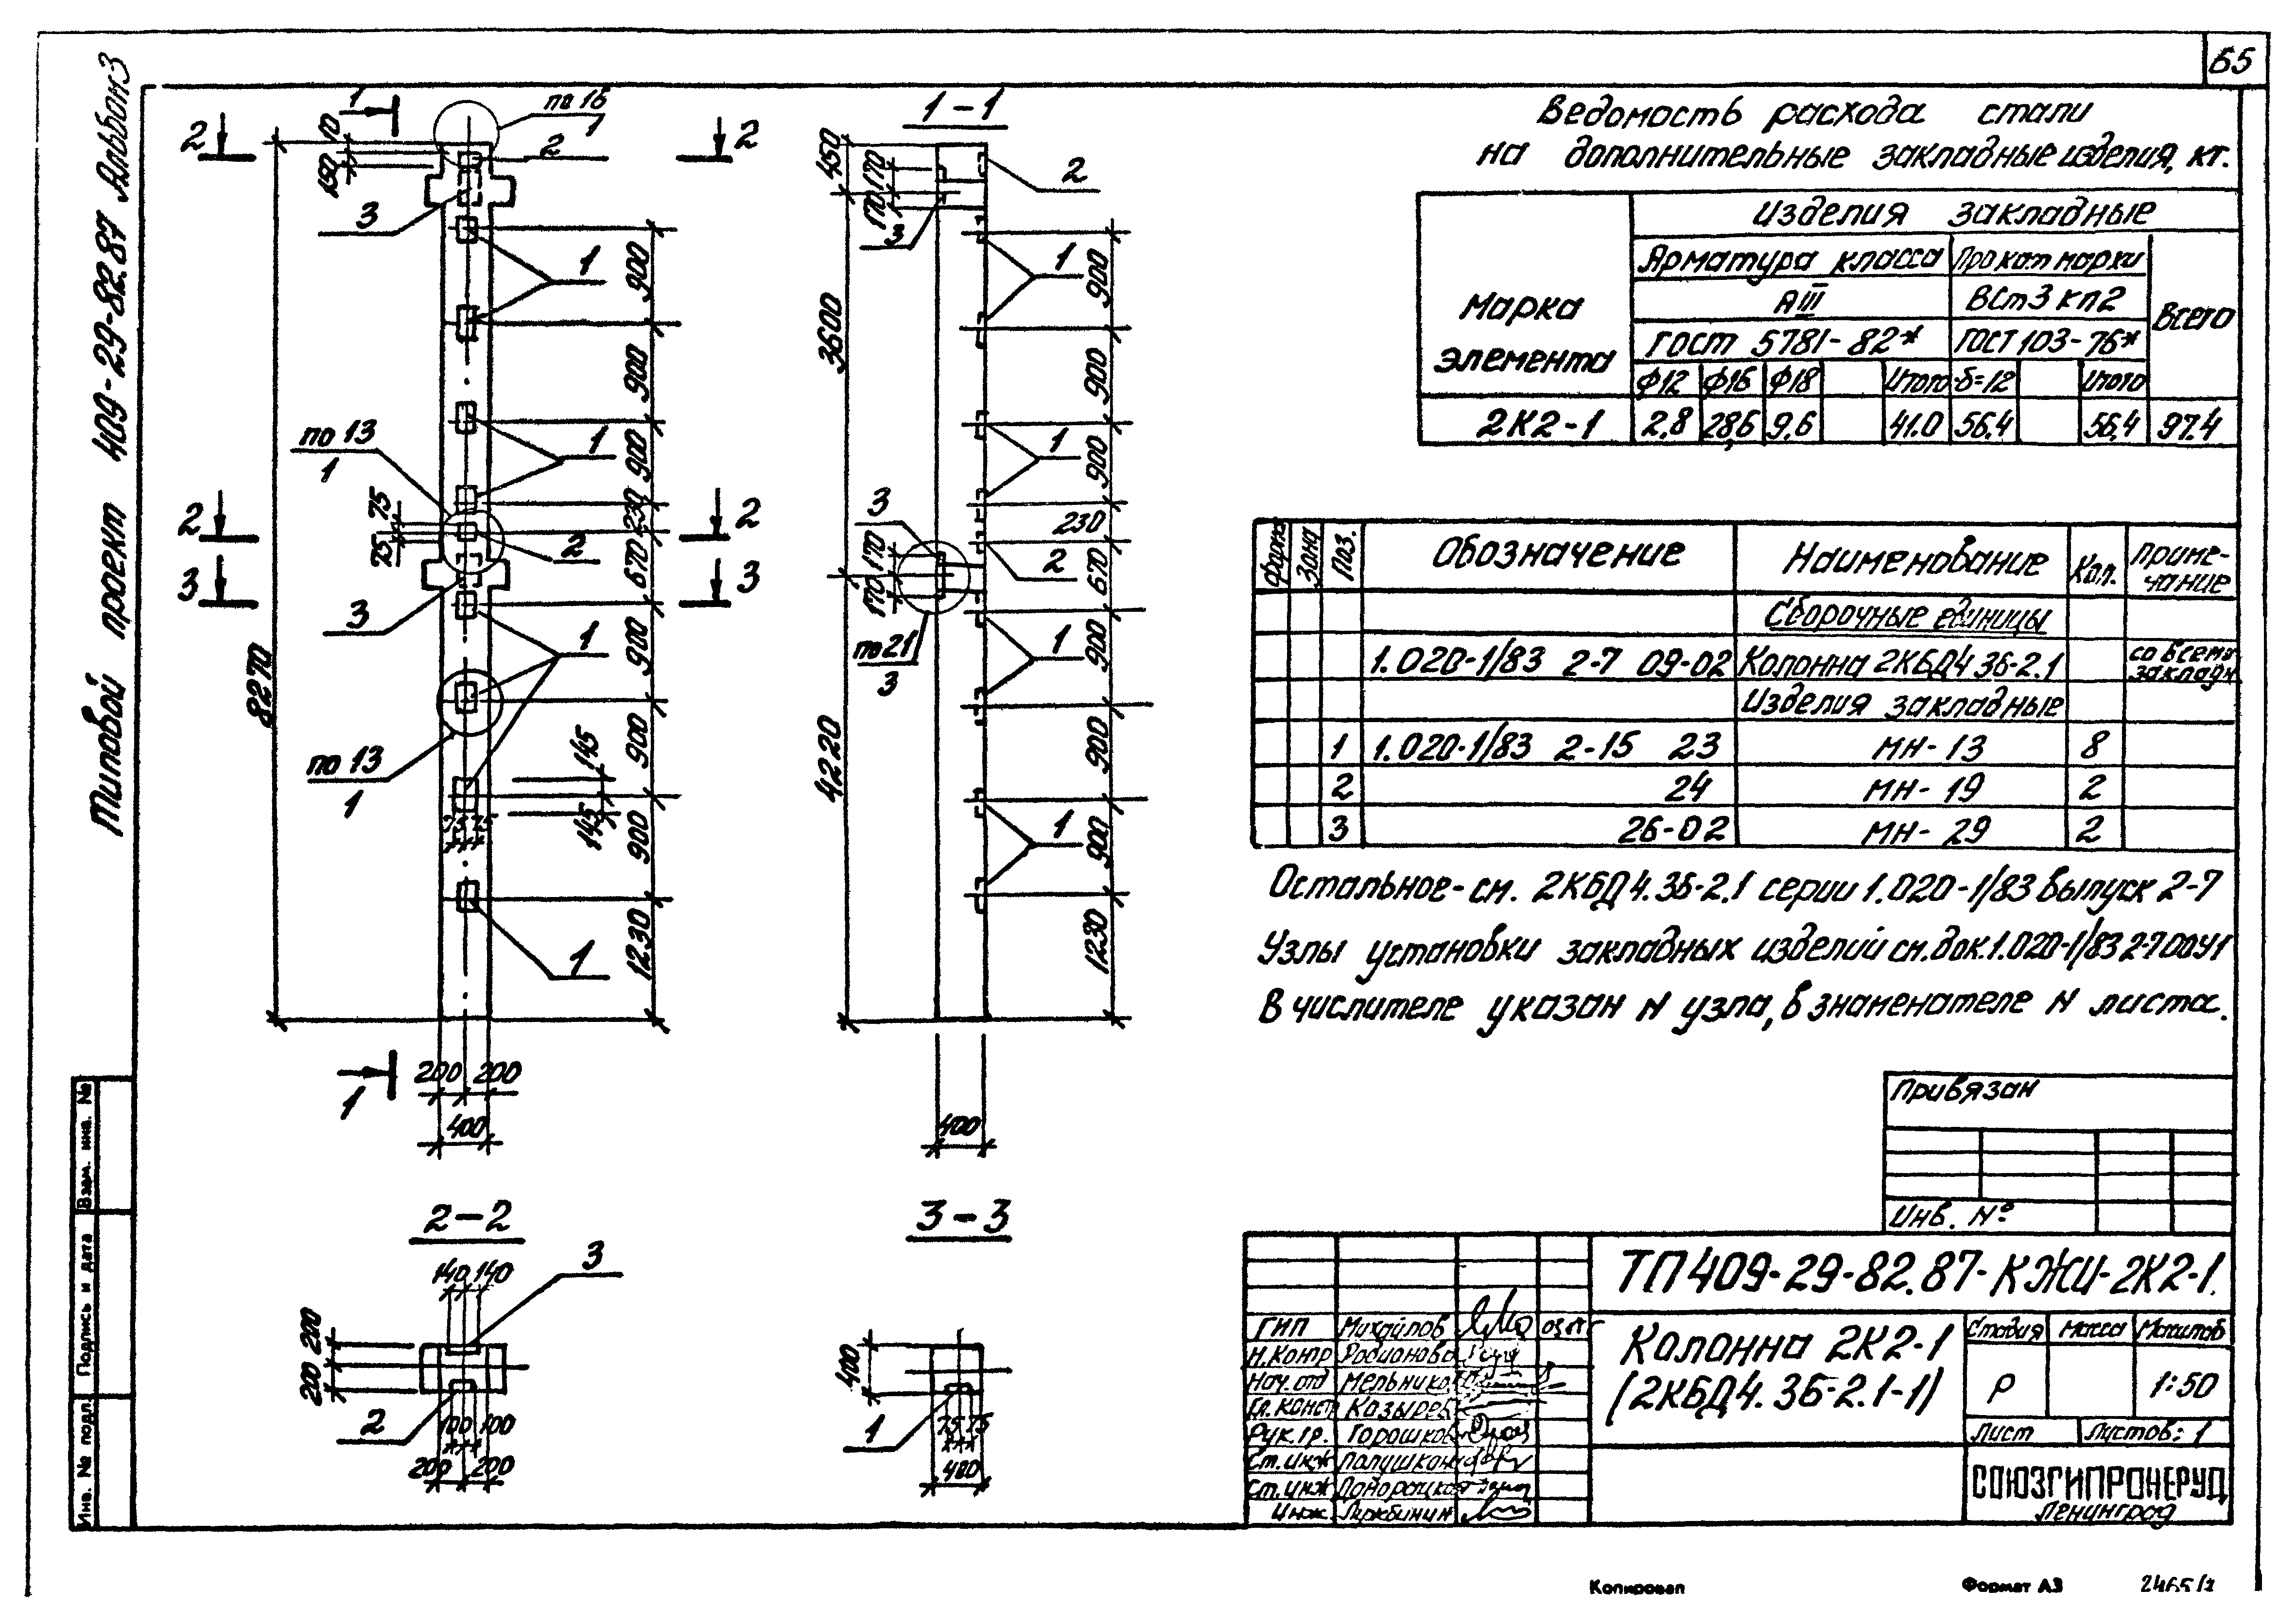 65
Типовой проект 409-29-82.87 Альбом 3
1
по 16
1
2
2
10
150
2
3
1
900
900
по 13
1
1
900
230
75
75
2
2
2
670
3
3
3
1
900
8270
900
по 13
1
145
145
75 75
900
1
1230
1
200 200
400
1-1
450
170
170
2
3
1
900
3600
900
1
900
3
230
170
170
2
670
по 21
3
1
900
4220
900
1
900
1230
400
2-2
140 140
3
200
200
2
100 100
200 200
3-3
400
1
75 75
400
Ведомость расхода стали
на дополнительные закладные изделия, кг.
Марка элемента
Изделия закладные
Арматура класса Прокат марки
АIII ВСт3 кп2
Всего
ГОСТ 5781-82* ГОСТ 103-76*
Ф12 Ф16 Ф18 Итого δ=12 Итого
2К2-1 2,8 28,6 9,6 41.0 56,4 56,4 97.4
Формат Зона Поз. Обозначение Наименование Кол. Приме-чание
Сборочные единицы
1.020-1/83 2-7 09-02 Колонна 2КБД4.36-2.1 со всеми закладн
Изделия закладные
1 1.020-1/83 2-15 23 МН-13 8
2 24 МН-19 2
3 26-02 МН-29 2
Остальное-см. 2КБД4.36-2.1 серии 1.020-1/83 Выпуск 2-7
Узлы установки закладных изделий см.док.1.020-1/83 2-7 00Ч1
В числителе указан N узла, в знаменателе N листа.
Привязан
Инв. №
ТП 409-29-82.87-КЖИ-2К2-1.
Колонна 2К2-1
(2КБД4.36-2.1-1)
Стадия Масса Масштаб
Р 1:50
Лист Листов: 1
СОЮЗГИПРОНЕРУД
Ленинград
ГИП Михайлов
Н.Контр Родионова
Нач.отд Мельников
Гл.конст Казырев
Рук.гр. Горошков
Ст.инж
Ст.инж
Инж.
Инв. № подл. Подпись и дата Взам. инв. №
Копировал
Формат А3
2465/3